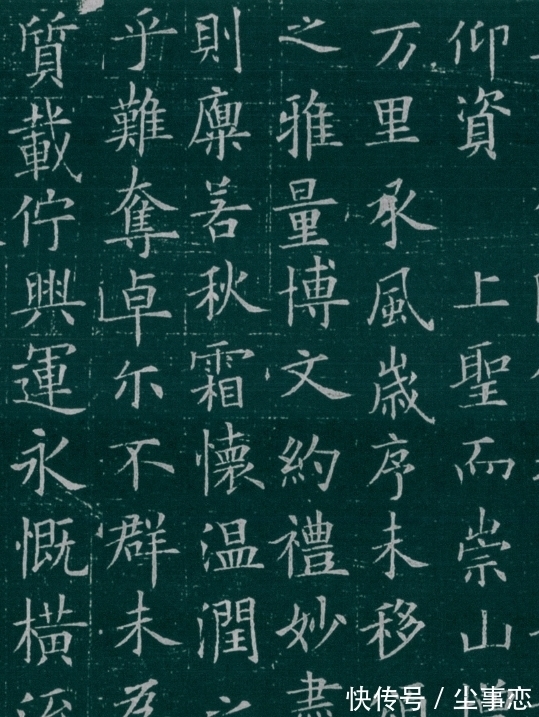 仰資　上聖而崇山
万里承風歲序未移
之雅量博文約禮妙盡
則廩若秋霜懷温潤之
乎難奪卓尒不群未爲
質載佇興運永慨橫
快传号 / 尘事恋